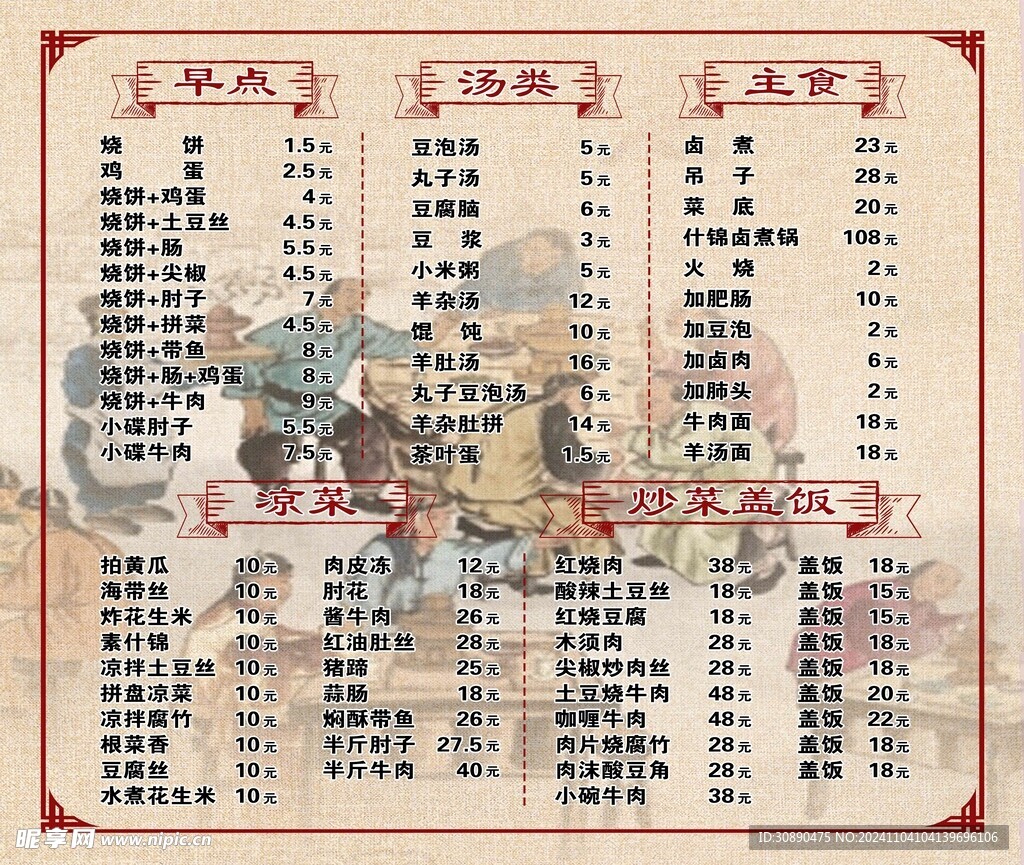 早点
烧饼 1.5元
鸡蛋 2.5元
烧饼+鸡蛋 4元
烧饼+土豆丝 4.5元
烧饼+肠 5.5元
烧饼+尖椒 4.5元
烧饼+肘子 7元
烧饼+拼菜 4.5元
烧饼+带鱼 8元
烧饼+肠+鸡蛋 8元
烧饼+牛肉 9元
小碟肘子 5.5元
小碟牛肉 7.5元
汤类
豆泡汤 5元
丸子汤 5元
豆腐脑 6元
豆浆 3元
小米粥 5元
羊杂汤 12元
馄饨 10元
羊肚汤 16元
丸子豆泡汤 6元
羊杂肚拼 14元
茶叶蛋 1.5元
主食
卤煮 23元
吊子 28元
菜底 20元
什锦卤煮锅 108元
火烧 2元
加肥肠 10元
加豆泡 2元
加卤肉 6元
加肺头 2元
牛肉面 18元
羊汤面 18元
凉菜
拍黄瓜 10元 肉皮冻 12元
海带丝 10元 肘花 18元
炸花生米 10元 酱牛肉 26元
素什锦 10元 红油肚丝 28元
凉拌土豆丝 10元 猪蹄 25元
拼盘凉菜 10元 蒜肠 18元
凉拌腐竹 10元 焖酥带鱼 26元
根菜香 10元 半斤肘子 27.5元
豆腐丝 10元 半斤牛肉 40元
水煮花生米 10元
炒菜盖饭
红烧肉 38元 盖饭 18元
酸辣土豆丝 18元 盖饭 15元
红烧豆腐 18元 盖饭 15元
木须肉 28元 盖饭 18元
尖椒炒肉丝 28元 盖饭 18元
土豆烧牛肉 48元 盖饭 20元
咖喱牛肉 48元 盖饭 22元
肉片烧腐竹 28元 盖饭 18元
肉沫酸豆角 28元 盖饭 18元
小碗牛肉 38元
昵享网 www.nipic.cn
ID:30890475 NO:20241104104139696106